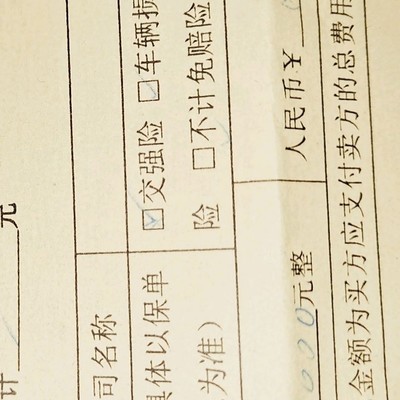 计 元
司名称
具体以保单 ☑交强险 □车辆损
为准） 险 □不计免赔险
000元整 人民币¥
金额为买方应支付卖方的总费用